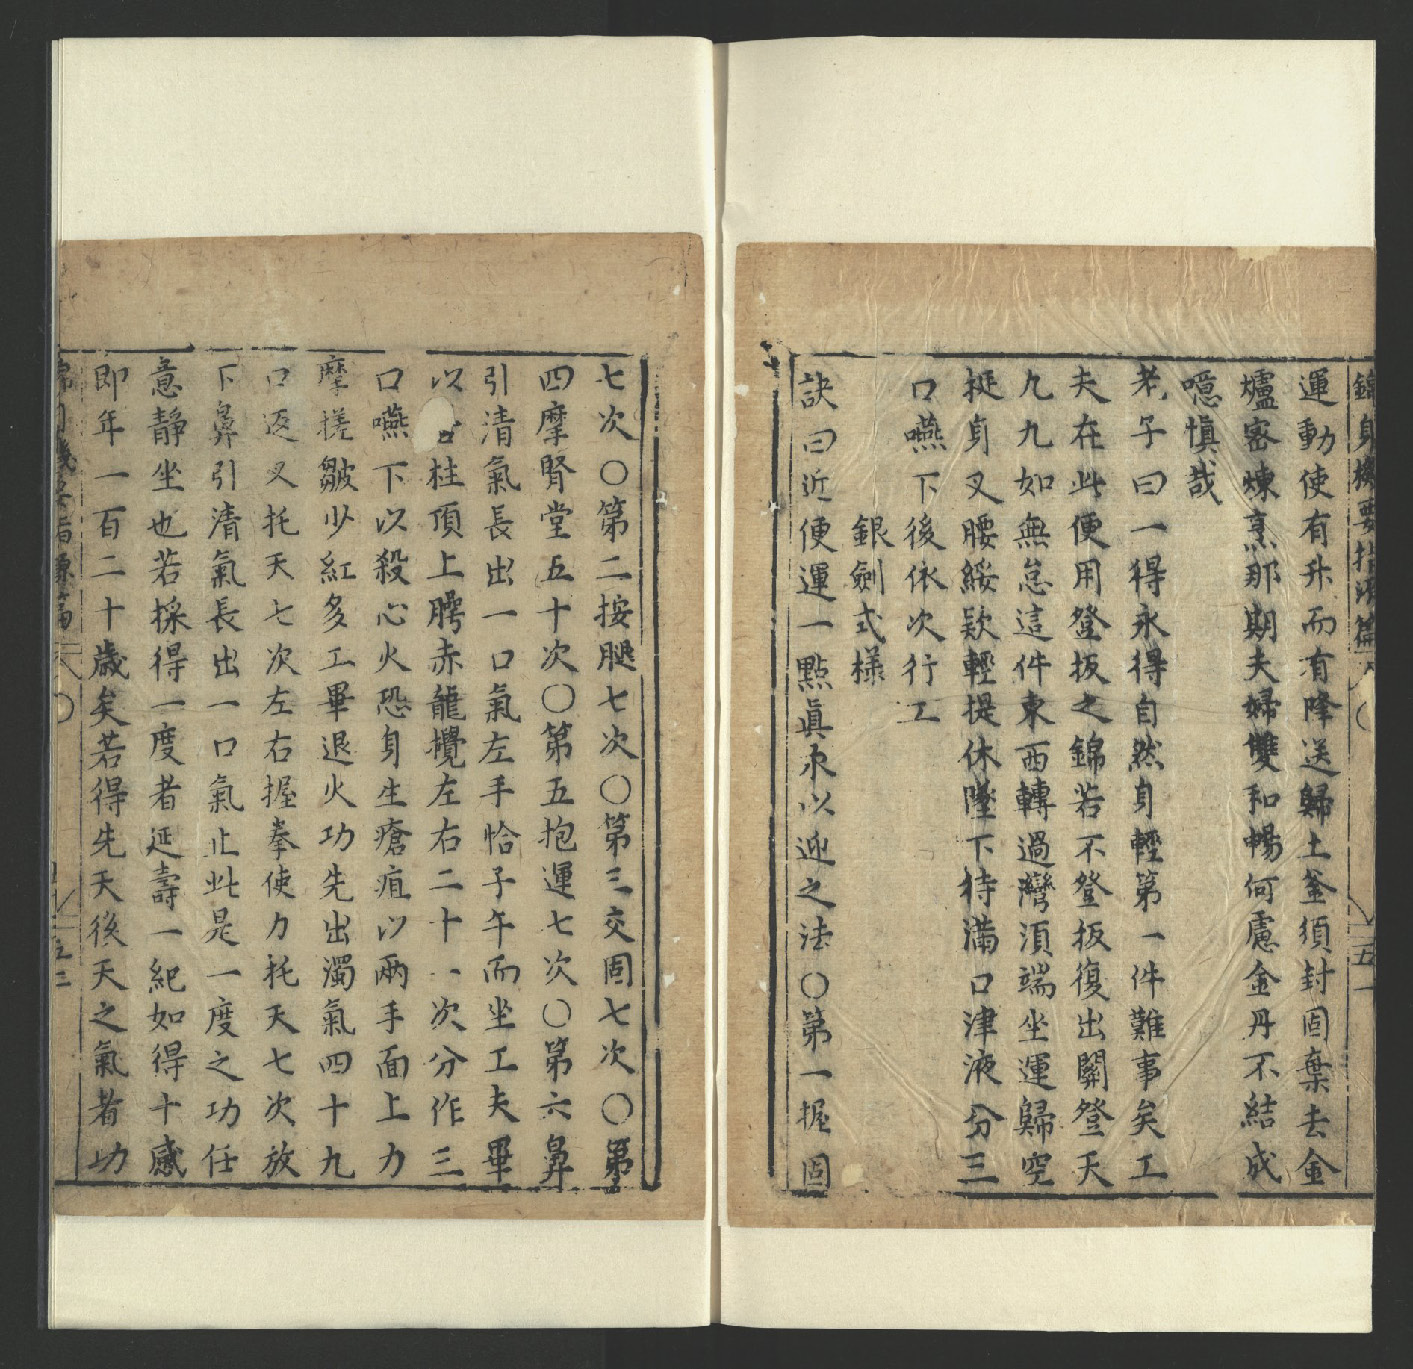 錦身機要指源篇
五十
運動使有升而有降送歸土釜須封固棄去金
爐密煉烹那期夫婦雙和暢何慮金丹不結成
噫慎哉
老子曰一得永得自然身輕第一件難事矣工
夫在此便用登扳之錦若不登扳復出關登天
九九如無怠這件東西轉過灣湏端坐運歸空
挺身叉腰綏欵輕提休墜下待滿口津液分三
口嚥下後依次行工
銀劍式樣
訣曰近便運一點眞汞以迎之法〇第一握固
七次〇第二按腿七次〇第三交固七次〇第
四摩腎堂五十次〇第五抱運七次〇第六鼻
引清氣長出一口氣左手恰子午而坐工夫畢
以舌柱頂上腭赤龍攪左右二十一次分作三
口嚥下以殺心火恐身生瘡疽以兩手面上力
摩搓皺少紅多工畢退火功先出濁氣四十九
口返叉托天七次左右握拳使力托天七次放
下鼻引清氣長出一口氣止此是一度之功任
意靜坐也若採得一度者延壽一紀如得十感
即年一百二十歲矣若得先天後天之氣者功
五十二